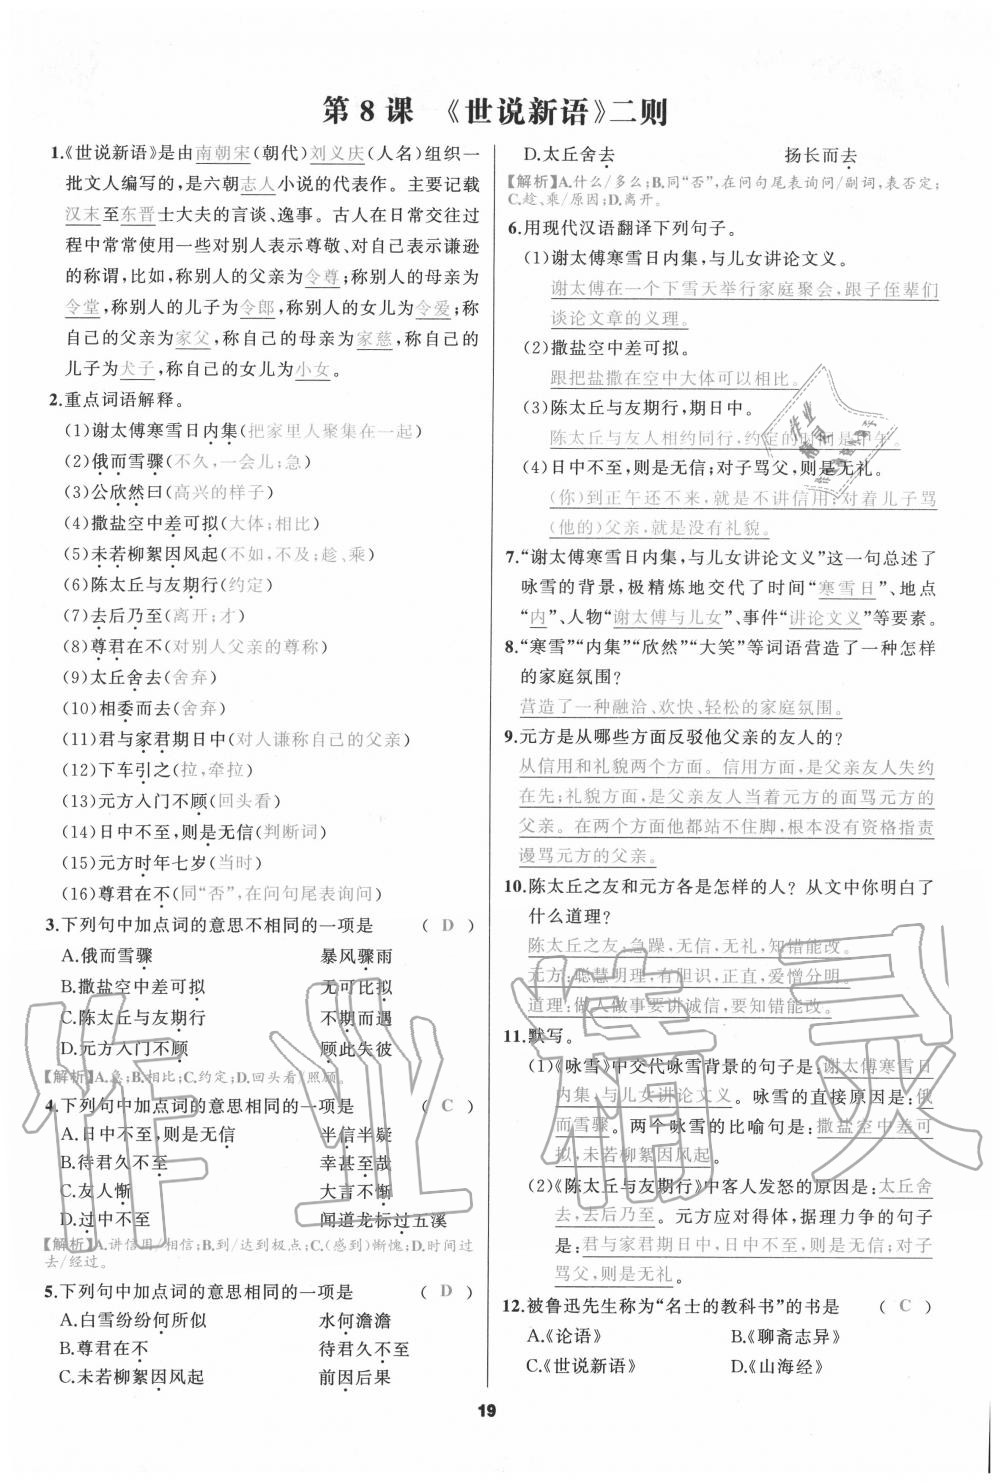 第 8 课　《世说新语》二则
1.《世说新语》是由南朝宋(朝代)刘义庆(人名)组织一
批文人编写的,是六朝志人小说的代表作。主要记载
汉末至东晋士大夫的言谈、逸事。古人在日常交往过
程中常常使用一些对别人表示尊敬、对自己表示谦逊
的称谓,比如,称别人的父亲为令尊;称别人的母亲为
令堂,称别人的儿子为令郎,称别人的女儿为令爱;称
自己的父亲为家父,称自己的母亲为家慈,称自己的
儿子为犬子,称自己的女儿为小女。
2.重点词语解释。
(1)谢太傅寒雪日内集(把家里人聚集在一起)
(2)俄而雪骤(不久,一会儿;急)
(3)公欣然曰(高兴的样子)
(4)撒盐空中差可拟(大体;相比)
(5)未若柳絮因风起(不如,不及;趁、乘)
(6)陈太丘与友期行(约定)
(7)去后乃至(离开;才)
(8)尊君在不(对别人父亲的尊称)
(9)太丘舍去(舍弃)
(10)相委而去(舍弃)
(11)君与家君期日中(对人谦称自己的父亲)
(12)下车引之(拉,牵拉)
(13)元方入门不顾(回头看)
(14)日中不至,则是无信(判断词)
(15)元方时年七岁(当时)
(16)尊君在不(同“否”,在问句尾表询问)
3.下列句中加点词的意思不相同的一项是 ( D )
A.俄而雪骤 暴风骤雨
B.撒盐空中差可拟 无可比拟
C.陈太丘与友期行 不期而遇
D.元方入门不顾 顾此失彼
【解析】A.急;B.相比;C.约定;D.回头看/照顾。
4.下列句中加点词的意思相同的一项是 ( C )
A.日中不至,则是无信 半信半疑
B.待君久不至 幸甚至哉
C.友人惭 大言不惭
D.过中不至 闻道龙标过五溪
【解析】A.讲信用/相信;B.到/达到极点;C.(感到)惭愧;D.时间过
去/经过。
5.下列句中加点词的意思相同的一项是 ( D )
A.白雪纷纷何所似 水何澹澹
B.尊君在不 待君久不至
C.未若柳絮因风起 前因后果
D.太丘舍去 扬长而去
【解析】A.什么/多么;B.同“否”,在问句尾表询问/副词,表否定;
C.趁、乘/原因;D.离开。
6.用现代汉语翻译下列句子。
(1)谢太傅寒雪日内集,与儿女讲论文义。
谢太傅在一个下雪天举行家庭聚会,跟子侄辈们
谈论文章的义理。
(2)撒盐空中差可拟。
跟把盐撒在空中大体可以相比。
(3)陈太丘与友期行,期日中。
陈太丘与友人相约同行,约定的时间是正午。
(4)日中不至,则是无信;对子骂父,则是无礼。
(你)到正午还不来,就是不讲信用;对着儿子骂
(他的)父亲,就是没有礼貌。
7.“谢太傅寒雪日内集,与儿女讲论文义”这一句总述了
咏雪的背景,极精炼地交代了时间“寒雪日”、地点
“内”、人物“谢太傅与儿女”、事件“讲论文义”等要素。
8.“寒雪”“内集”“欣然”“大笑”等词语营造了一种怎样
的家庭氛围?
营造了一种融洽、欢快、轻松的家庭氛围。
9.元方是从哪些方面反驳他父亲的友人的?
从信用和礼貌两个方面。信用方面,是父亲友人失约
在先;礼貌方面,是父亲友人当着元方的面骂元方的
父亲。在两个方面他都站不住脚,根本没有资格指责
谩骂元方的父亲。
10.陈太丘之友和元方各是怎样的人?从文中你明白了
什么道理?
陈太丘之友:急躁,无信,无礼,知错能改。
元方:聪慧明理,有胆识,正直,爱憎分明。
道理:做人做事要讲诚信,要知错能改。
11.默写。
(1)《咏雪》中交代咏雪背景的句子是:谢太傅寒雪日
内集,与儿女讲论文义。咏雪的直接原因是:俄
而雪骤。两个咏雪的比喻句是:撒盐空中差可
拟、未若柳絮因风起。
(2)《陈太丘与友期行》中客人发怒的原因是:太丘舍
去,去后乃至。元方应对得体,据理力争的句子
是:君与家君期日中,日中不至,则是无信;对子
骂父,则是无礼。
12.被鲁迅先生称为“名士的教科书”的书是 ( C )
A.《论语》 B.《聊斋志异》
C.《世说新语》 D.《山海经》
19
作业精灵
作业
精灵